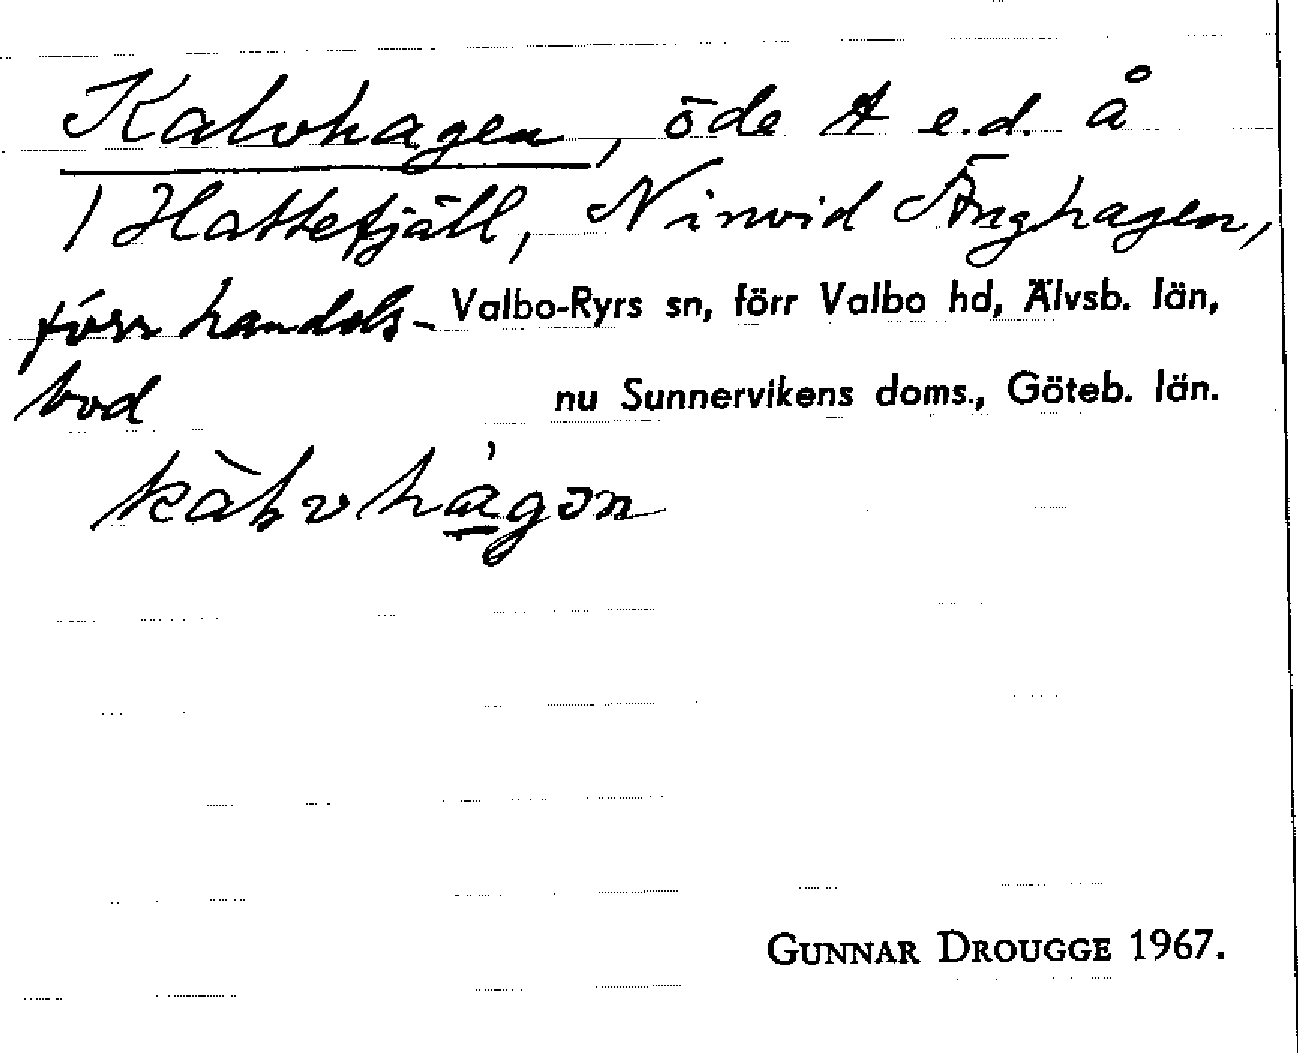 Kalvhagen, öde t e.d. å
1 Hattefjäll, N invid Änghagen,
förr handels- Valbo-Ryrs sn, förr Valbo hd, Älvsb. län,
bod nu Sunnervikens doms., Göteb. län.
kàɫvhágən
GUNNAR DROUGGE 1967.